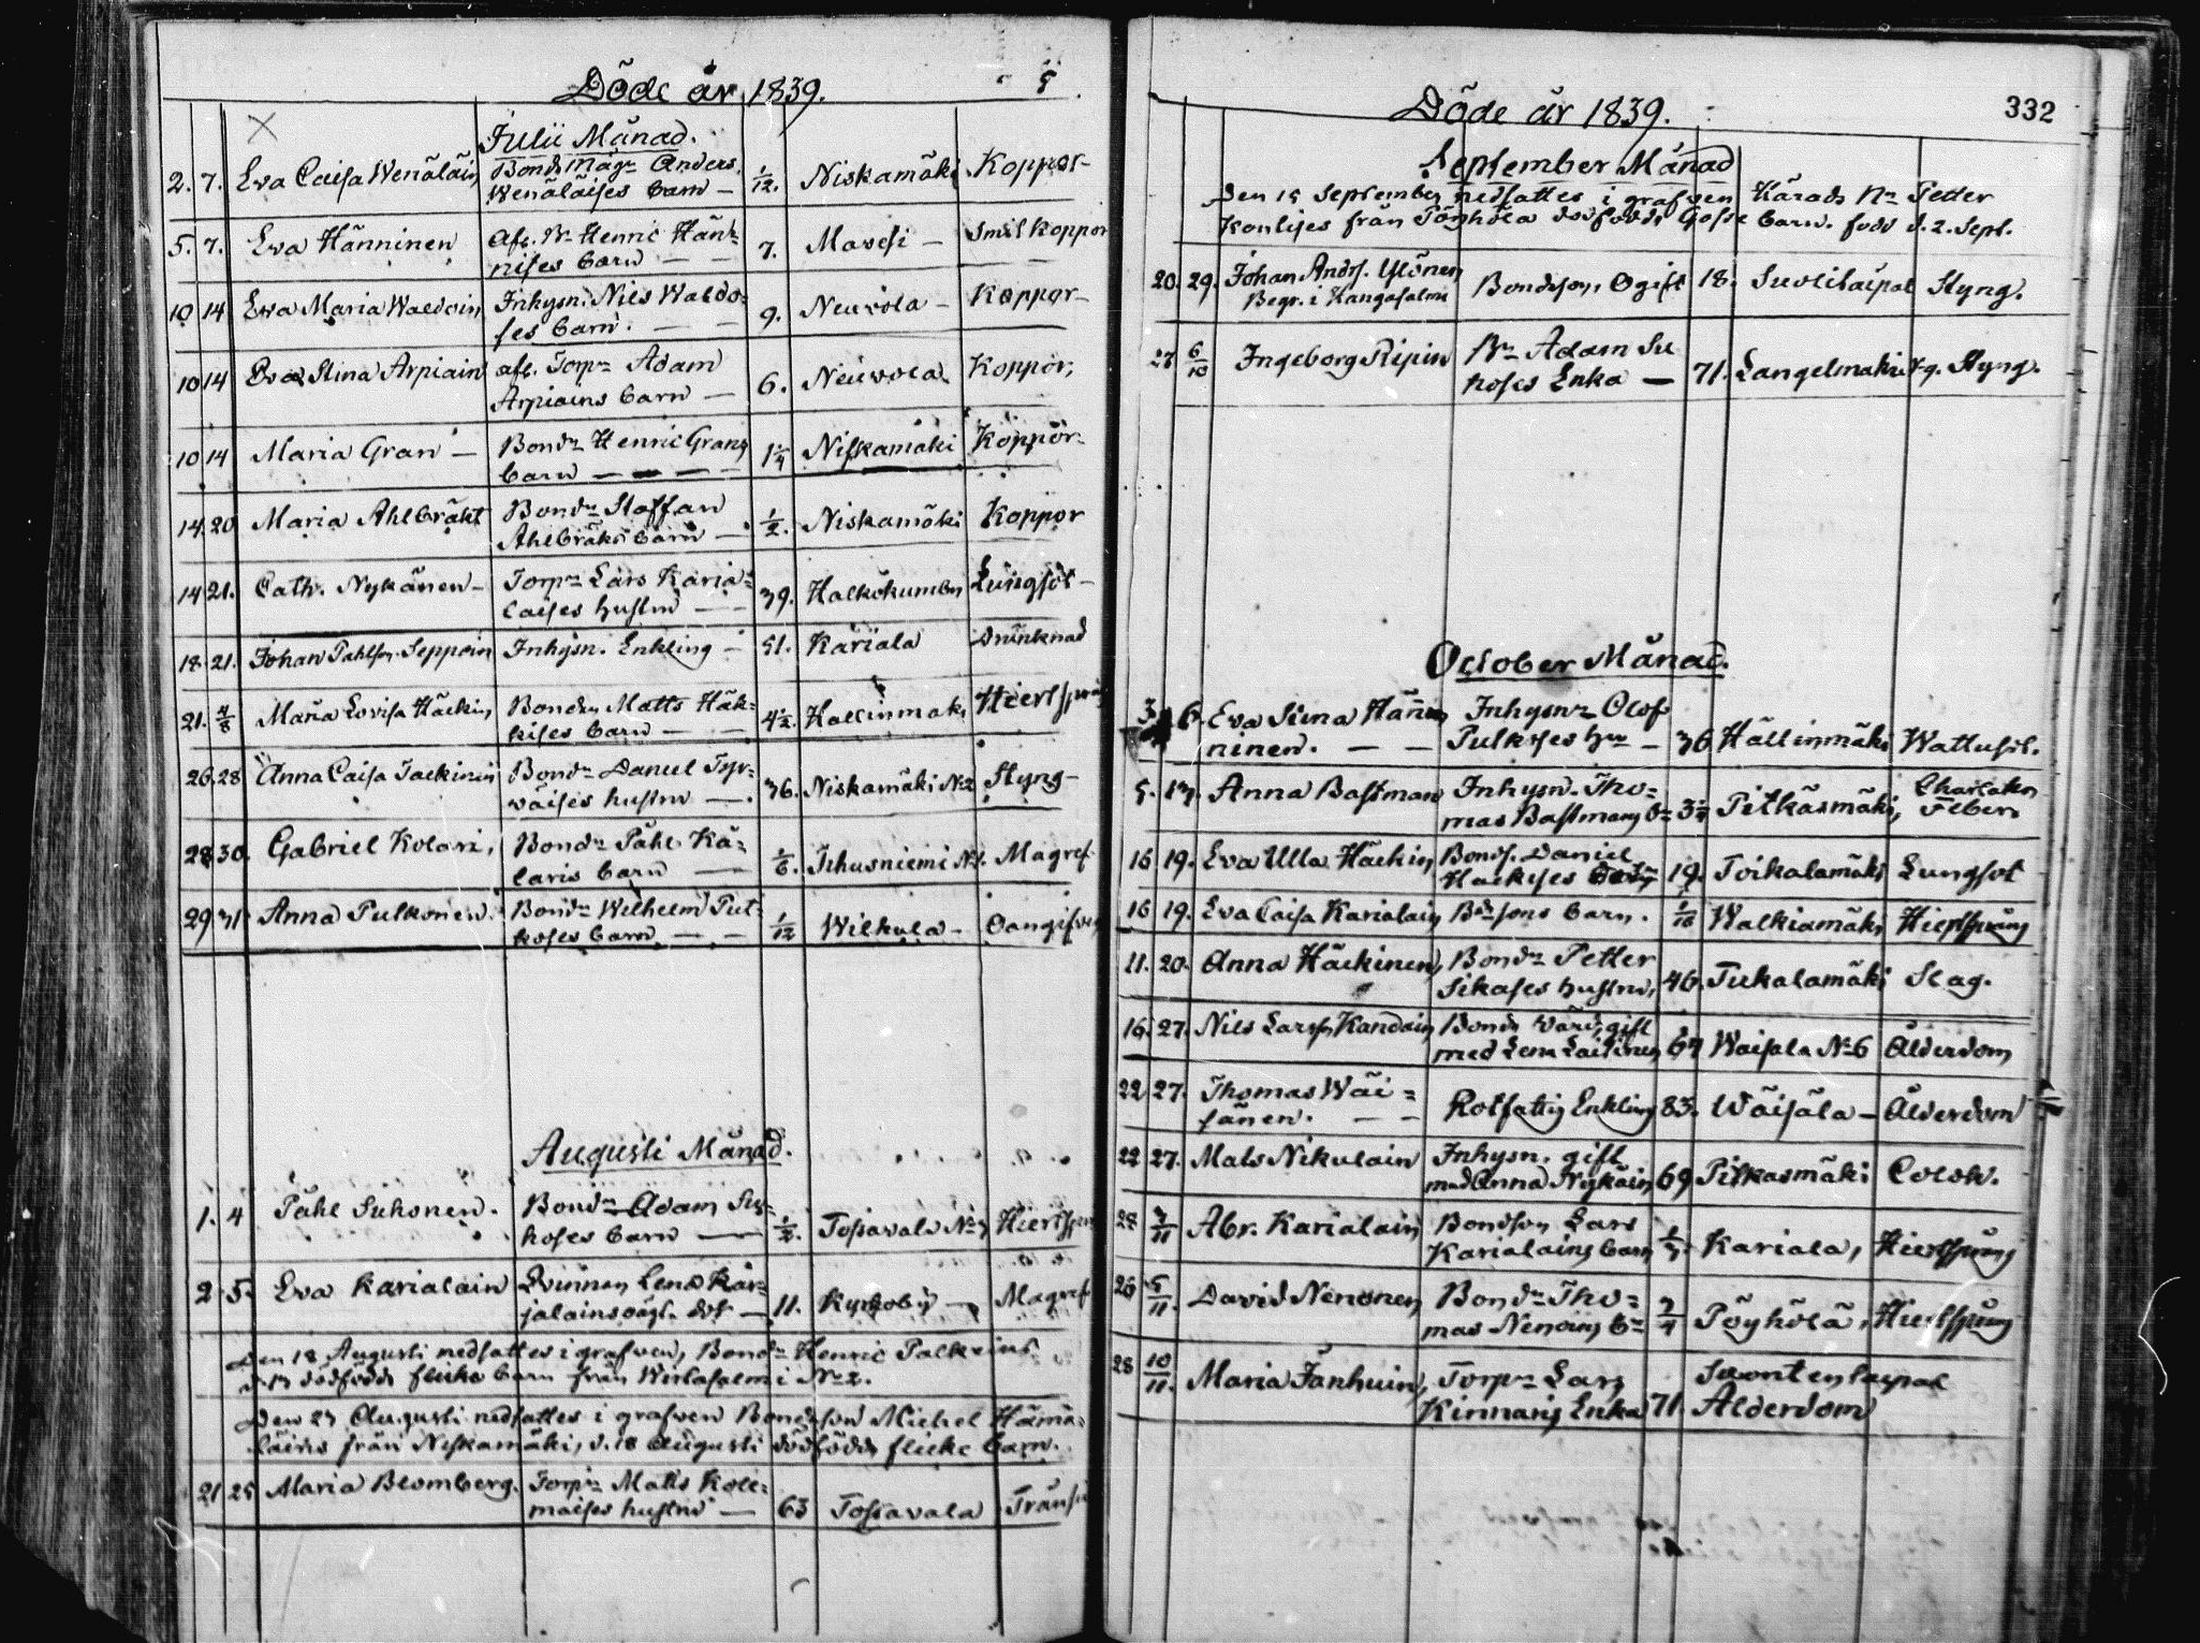 Döde år 1839.
Julii Månad.
2. 7. Eva Caisa Wenäläin Bonds Mågs Anders Wenäläises barn — 1/12. Niskamäki Koppor-
5. 7. Eva Hänninen afl. Bn Henric Hän-
nises barn — — 7. Mavesi — Smål koppor
10 14 Eva Maria Waldoin Inhysn. Nils Waldo-
ses barn. — — 9. Neuvola — Koppor-
10 14 Eva Stina Arpiain afl. Torpn Adam
Arpiains barn — 6. Neuvola. Koppor,
10 14 Maria Gran — Bondn Henric Grans
barn — — — 1 1/4 Niskamäki Koppor-
14. 20 Maria Ahlbräkt Bondn Staffan
Ahlbräks barn — 1/2. Niskamäki Koppor
14 21. Cath. Nykänen — Torpn Lars Karia-
laises hustru — 39. Halkokumbu Lungsot —
18. 21. Johan Pahlson Seppoin Inhysn. Enkling — 51. Kariala Drunknad
21. 4/8 Maria Lovisa Häckin Bonden Matts Häk-
kises barn — — 4 1/2. Hallinmäki Hiertspräng
26. 28 Anna Caisa Jackinin Bondn Daniel Tyr-
väises hustru — 36. Niskamäki No 2 Styng —
28 30. Gabriel Kolari, Bondn Påhl Ko-
laris barn — 1/6. Ihusniemi No 1. Magref
29 31 Anna Pulkonen. Bondn Wilhelm Pul-
koses barn — — 1/12 Wilkula — Oangifven
Augusti Månad.
1. 4 Påhl Suhonen. Bondn Adam Su-
hoses barn — 1/2. Tossavala No 7 Hiertspräng
2 5. Eva Karialain Qvinnan Lena Kar-
jalains oägt. dot — 11. Kyrkoby — Magref
Den 18 Augusti nedsattes i grafven, Bondn Henric Pulkkins
dödfödda flicko barn från Wirtasalmi No 2.
Den 25 Augusti nedsattes i grafven Bondeson Michel Hämä-
läins från Niskamäki, d. 18 Augusti dödfödda flicke barn.
21 25 Maria Blomberg. Torpn Matts Kole-
maises hustru — 63 Tossavala Trånsj
Döde år 1839.
332
September Månad
Den 15 September nedsattes i grafven Härads Nn Petter
Konlises från Pöyhölä dödfödda Gosse barn. född d. 2. Sept.
20. 29. Johan Andrs. Ylönen
Begr. i Kangasalmi Bondeson, Ogift 18. Suolilaipal Styng.
27 6/10 Ingeborg Ripin Bn Adam Su
hoses Enka — 71. Längelmäki Styng.
October Månad.
3. 6. Eva Stina Hän
ninen. — — Inhysn Olof
Pulkoses hu — 36 Hällinmäki Wattusot.
5. 13. Anna Bastman Inhysn. Tho-
mas Bastmans bn 3 1/4 Pitkäsmäki, Charlakan
Feber
16 19. Eva Ulla Häckin Bonds. Daniel
Häckises 19. Toikalamäki Lungsot
16 19. Eva Caisa Karialain Bdsons barn. 1/10 Walkiamäki Hiertspräng
11. 20. Anna Häckinen, Bondn Petter
Sikases hustru, 46. Tukalamäki Slag.
16. 27. Nils Larsson Kandoin Bonde värd, gift
med Lena Laitinen 67 Waisala No 6 Ålderdom
22 27. Thomas Wäi-
sänen. — — Rotfattig Enkling 83. Wäisälä — Ålderdom
22 27. Mats Nikulain Inhysn. gift
med Anna Nykäin 69 Pitkasmäki Colok.
28 3/11 Abr. Karialain Bondson Lars
Karialains barn 1/3 Kariala, Hiertspräng
26 5/11. David Nenonen Bondn Tho-
mas Nenoins bn 3/4 Pöyhölä, Hiertspräng
28 10/11. Maria Janhuin, Torpn Lars
Kinnaris Enka 71. Suontenlaipal
Ålderdom